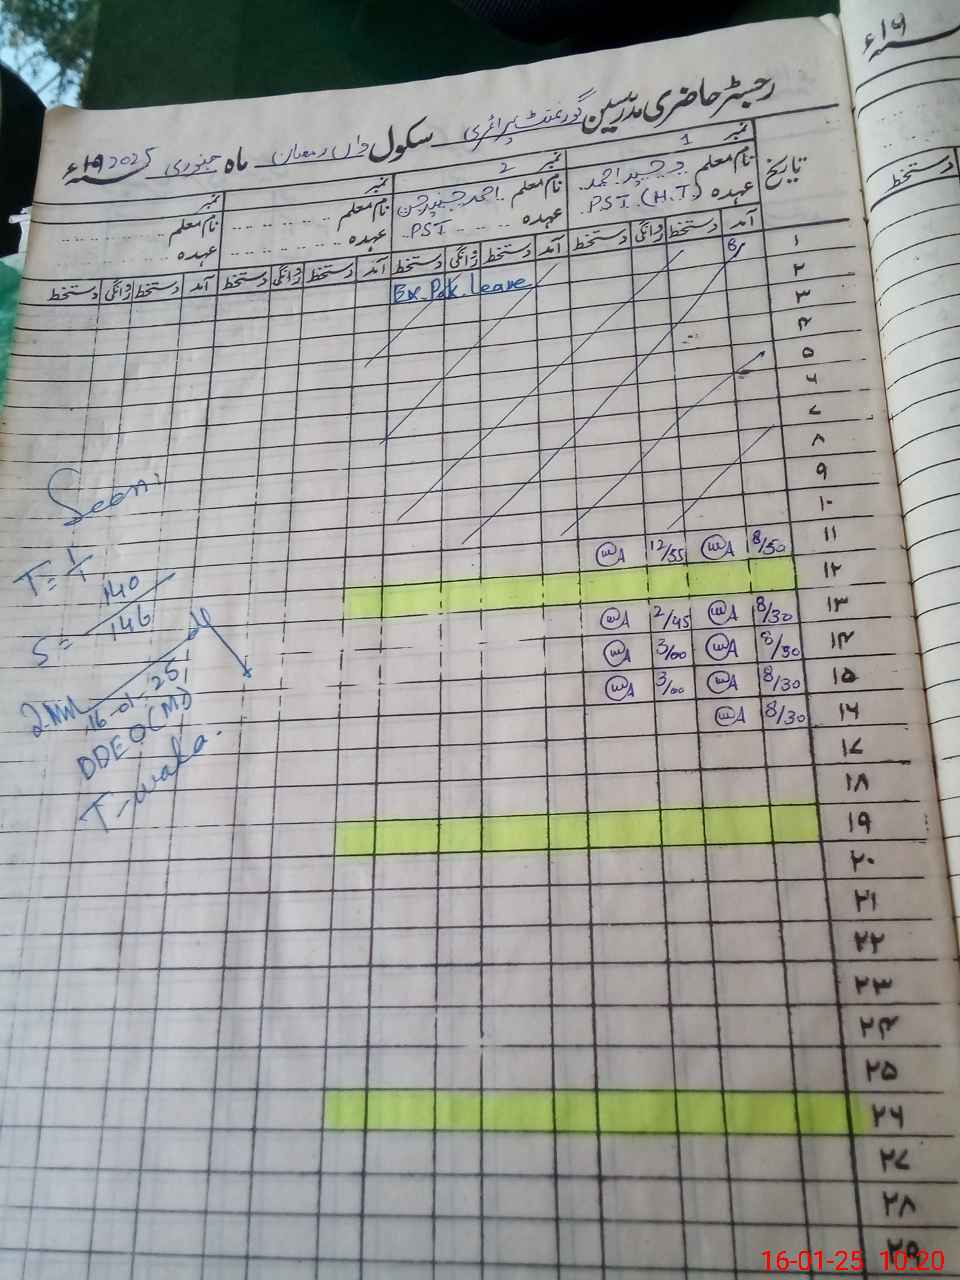 رجسٹر حاضری مدرسین گورنمنٹ پرائمری سکول واں رمضان ماہ جنوری 2025 ۱۹ء
نمبر 1 نمبر 2 نمبر نمبر
تاریخ نام معلم احمد نام معلم احمد نام معلم نام معلم
عہدہ PST (H.T) عہدہ PST عہدہ عہدہ
آمد دستخط روانگی دستخط آمد دستخط روانگی دستخط آمد دستخط روانگی دستخط آمد دستخط روانگی دستخط
۱ 8/
۲ Ex-Pak. Leave
۳
۴
۵
۶
۷
۸
۹
۱۰
۱۱ 8/50 12/55
۱۲
۱۳ 8/30 2/45
۱۴ 8/30 3/00
۱۵ 8/30 3/00
۱۶ 8/30
۱۷
۱۸
۱۹
۲۰
۲۱
۲۲
۲۳
۲۴
۲۵
۲۶
۲۷
۲۸
۲۹
Seen.
T= 1/1
S= 140/146
16-01-25
DDEO(M)
T-wala.
۱۹ء
دستخط
16-01-25 10:20